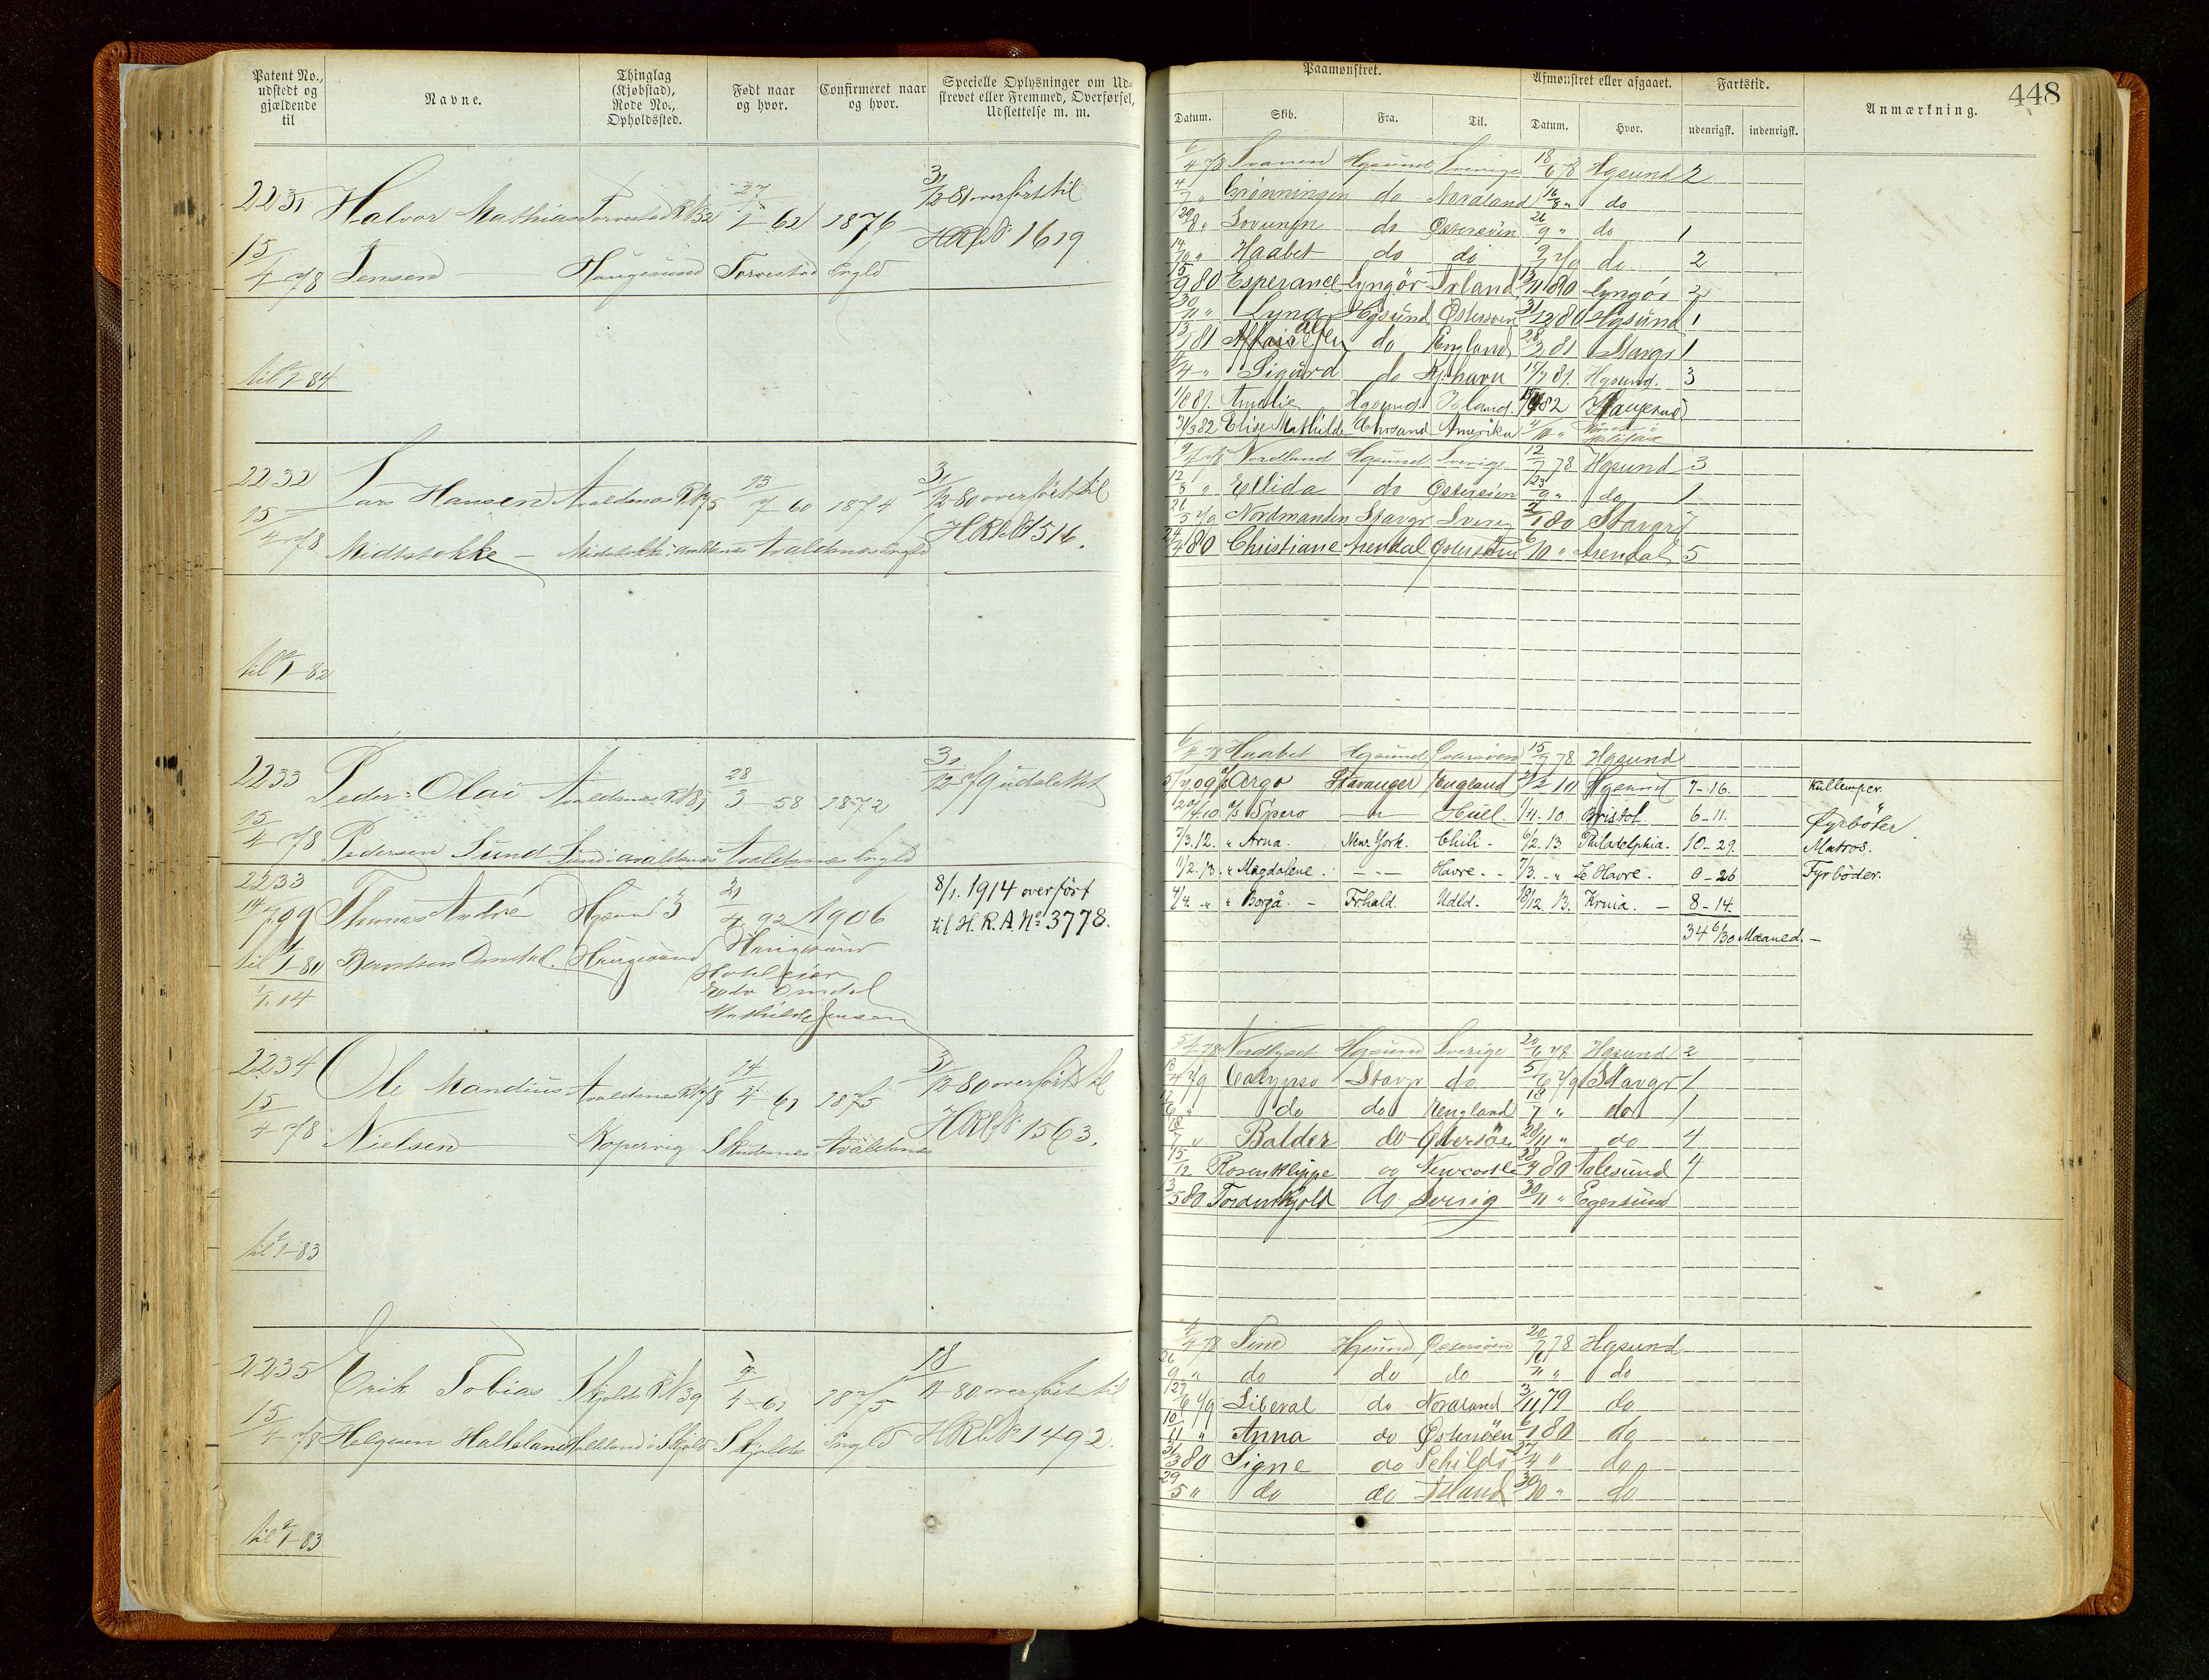 Patent No.,
udstedt og
gjældende
til
Navne.
Thinglag
(Kjøbstad),
Rode No.,
Opholdssted.
Født naar
og hvor.
Confirmeret naar
og hvor.
Specielle Oplysninger om Ud-
skrevet eller Fremmed, Overførsel,
Udslettelse m. m.
2231 Halvor Mathias Torvestad R No 52 27/1 62 1876 31/12 81 overført til
15/4 78 Jensen Haugesund Torvestad Engld HRL No 1619
til 1/1 84
2232 Lars Hansen Avaldsnes R No 75 13/7 60 1874 31/12 80 overført til
15/4 78 Midtstokke Avaldsnes Engld HRL No 1516.
til 1/1 82
2233 Peder Olai Avaldsnes R No 81 28/3 58 1872 31/12 79 udslettet
15/4 78 Pedersen Sund Sund i Avaldsnes Avaldsnes Engld
2233 Thomas André Hgsund 3 4 92 1906 8/1. 1914 overført
14/7 09 Haugesund til H. R. A. No 3778.
til 1/1 81 Berntsen Omdal. Haugesund
1/1. 14 Hotel eier
Omdal
Mathilde Jensen
2234 Ole Mandius Avaldsnes R No 78 14/4 61 1875 31/12 80 overført til
15/4 78 Nielsen Kopervig Skudesnes Avaldsnes HRL No 1563.
til 1/1 83
2235 Erik Tobias Skjolds R No 39 4 61 1875 18/11 80 overført til
15/4 78 Helgesen Halleland Halleland i Skjold Skjolds Engld HRL No 1492.
til 1/1 83
448
Paamønstret.
Afmønstret eller afgaaet.
Fartstid.
Anmærkning.
Datum. Skib. Fra. Til. Datum. Hvor. udenrigsk. indenrigsk.
6/4 78 Svanen Hgsund Sverige 18/6 78 Hgsund 2
4/7 " Grönningen do Nordland 16/8 " do
" do Østersöen 26/9 " do 1
14/10 " Haabet do do 79 do 2
15/9 80 Esperance Lyngör Irland 13/11 80 Lyngör 2
30/11 " Lyna Hgsund Østersöen 31/12 80 Hgsund 1
13/1 81 do England 28/2 81 Stavgr 1
4/4 " Sigurd do Kj.havn 15/7 81. Hgsund. 3
81. Amalie Hgsund. Island. 82 Haugesund
31/3 82 Elise Mathilde Chrsand Amerika /10 " Halifax
9/4 78 Nordland Hgsund Sverige 12/7 78 Hgsund 3
12/8 " Ellida do Østersöen 23/9 " do 1
21/5 79 Nordmanden Stavgr Sverig 2/1 80 Stavgr 7
24/4 80 Christiane Arendal Østersöen 6/10 " Arendal 5
6/4 78 Haabet Hgsund Østersöen 15/7 78 Hgsund
5/7 09 Argo Stavanger England /2 10 Hgsund 7-16. Kullemper.
/4.10 d/s Spero Hull. 1/11.10 Bristol. 6-11. Fyrböter.
7/3.12. " Arna. New York. Chili - 6/2.13 Philadelphia. 10-29. Matros.
11/2.13. " Magdalene. Havre. - 7/3. - " Le Havre. 0-26 Fyrböder.
4/4. " " Borgå. - Frhald. Udld. - 18/12. 13. Krnia. - 8-14.
34 6/30 Maaned. -
5/4 78 Nordlyset Hgsund Sverige 20/6 78 Hgsund 2
18/4 79 Calypso Stavgr do 5/6 79 Stavgr 1
17/6 " do do England 18/7 " do 1
18/7 " Balder do Østersöen 28/11 " do 4
15/12 Rosenklippe og Newcastle 28/4 80 Aalesund 4
13/5 80 Tordenskjold do Sverig 30/11 " Egersund
6/4 78 Tine Hgsund Østersöen 20/7 78 Hgsund
26/9 " do do do 16/11 " do
27/6 79 Liberal do Nordland 3/11 79 do
10/11 " Anna do Østersöen 6/1 80 do
31/3 80 Signe do 27/4 " do
29/5 " do do Island 30/10 " do